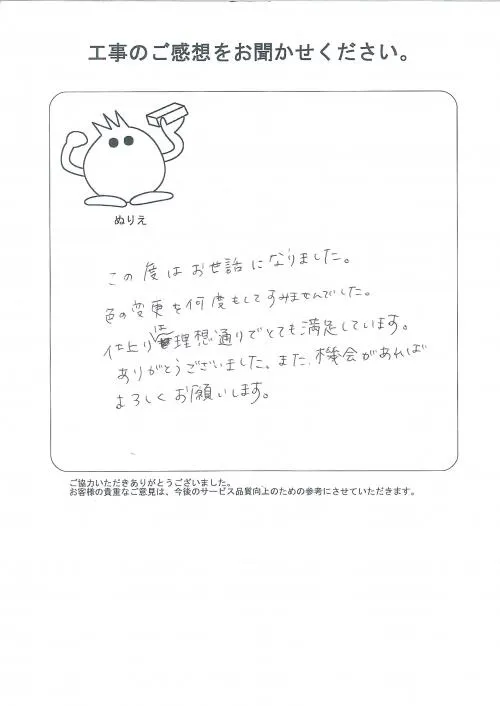 工事のご感想をお聞かせください。
ぬりえ
この度はお世話になりました。
色の変更を何度もしてすみませんでした。
仕上りは理想通りでとても満足しています。
ありがとうございました。また、機会があれば
よろしくお願いします。
ご協力いただきありがとうございました。
お客様の貴重なご意見は、今後のサービス品質向上のための参考にさせていただきます。